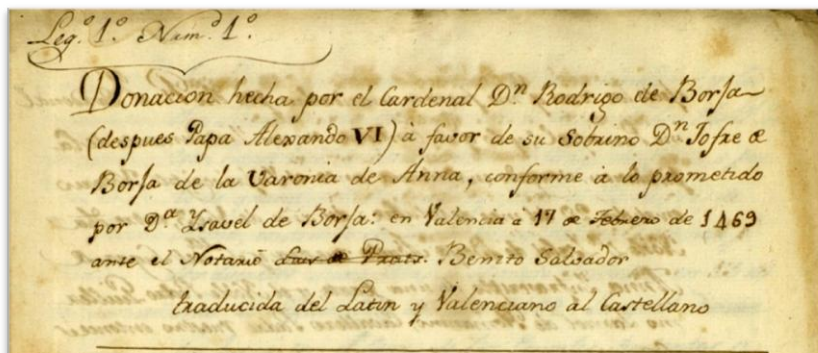 Leg.º 1.º Num.º 1.º
Donacion hecha por el Cardenal D.n Rodrigo de Borja
(despues Papa Alexando VI) à favor de su Sobrino D.n Jofre de
Borja de la Varonia de Anna, conforme à lo prometido
por D.a Ysavel de Borja: en Valencia a 17 de Febrero de 1469
ante el Notario Luis de Prats. Benito Salvador
traducida del Latin y Valenciano al Castellano